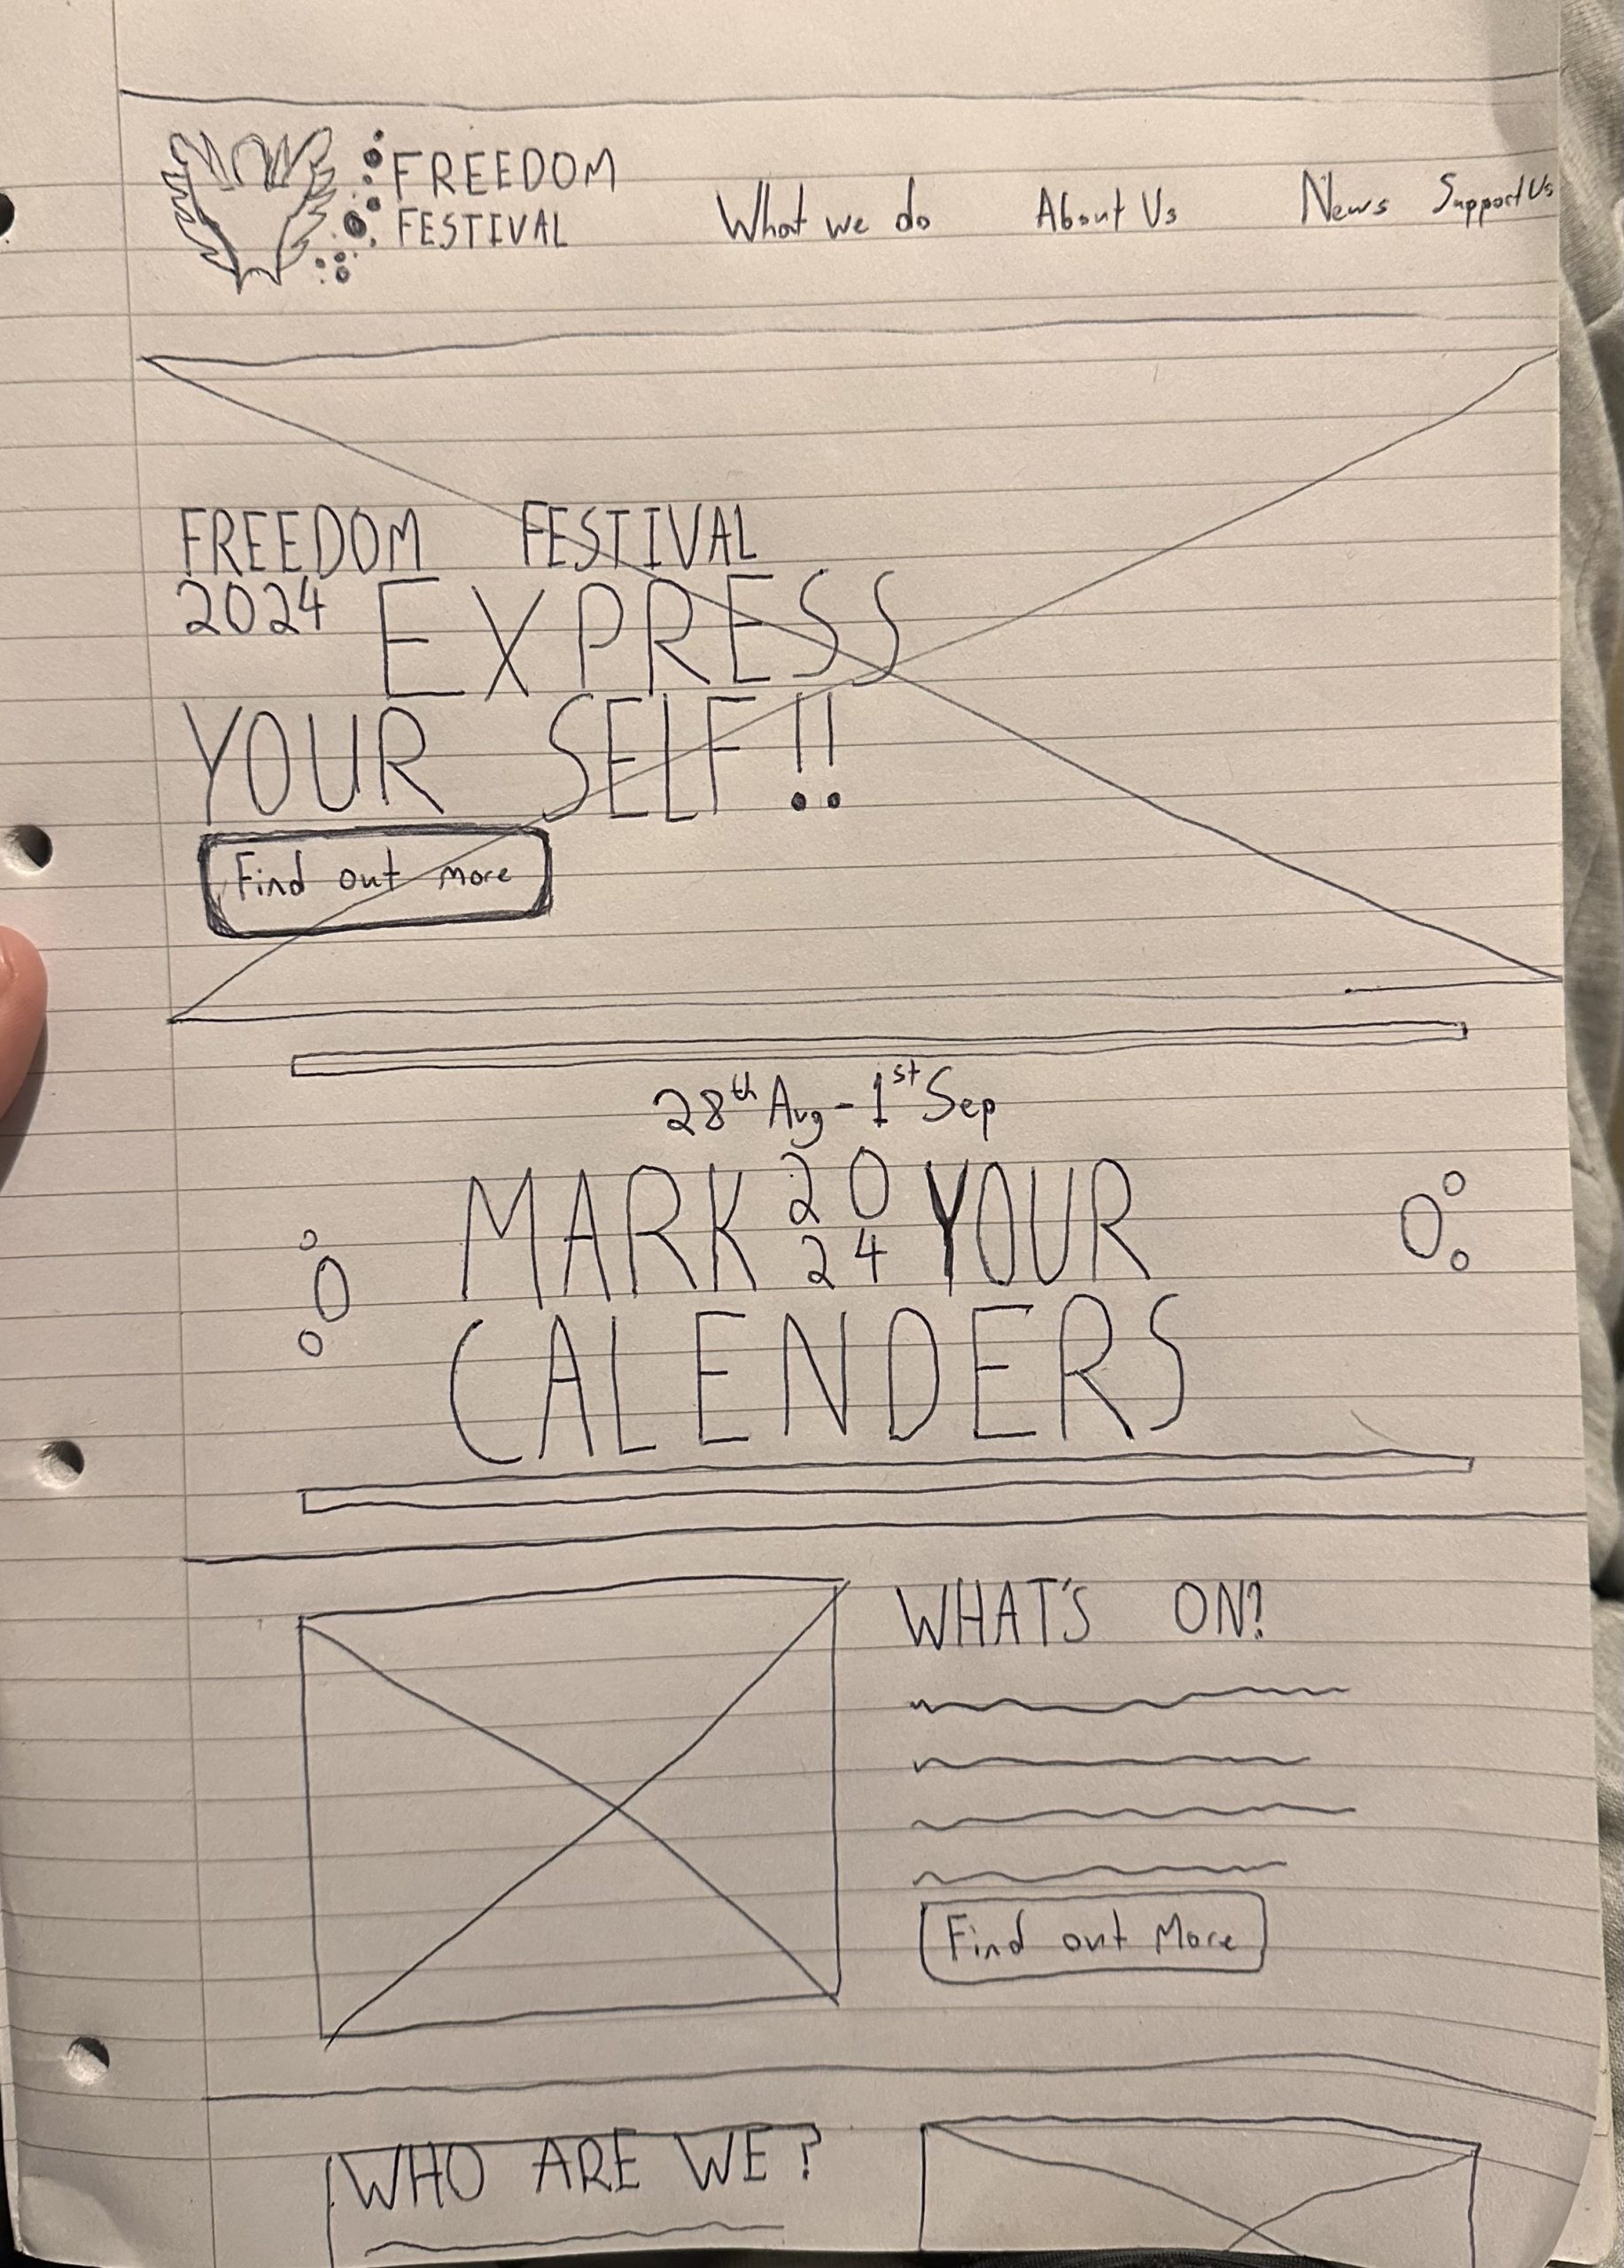 FREEDOM
FESTIVAL
What we do About Us News Support Us
FREEDOM FESTIVAL
2024 EXPRESS
YOUR SELF!!
Find out more
28th Aug - 1st Sep
MARK 20 YOUR
24
CALENDERS
WHAT'S ON?
Find out More
WHO ARE WE?